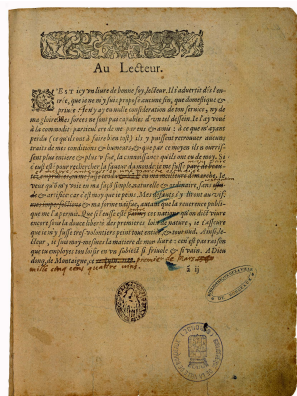 Au Lecteur.
C'EST icy vn liure de bonne foy, lecteur. Il t'aduertit dés l'en-
trée, que ie ne m'y suis proposé aucune fin, que domestique &
priuée: ie n'y ay eu nulle consideration de ton seruice, ny de
ma gloire: Mes forces ne sont pas capables d'vn tel dessein. Ie l'ay voué
à la commodité particuliere de mes parens & amis: à ce que m'ayant
perdu (ce qu'ils ont à faire bien tost) ils y puissent retrouuer aucuns
traits de mes conditions & humeurs, & que par ce moyen ils nour-
rissent plus entiere & plus vifue, la connoissance qu'ils ont eu de moy. Si
c'eust esté pour rechercher la faueur du monde, ie me fusse paré de beau-
tez empruntées
veux qu'on m'y voie en ma façon simple, naturelle & ordinaire, sans
& artifice: car c'est moy que ie peins. Mes defauts s'y liront au vif,
& ma forme naïfue, autant que la reuerence publi-
que me l'a permis. Que si i'eusse esté ces nations qu'on dict viure
encore sous la douce liberté des premieres loix de nature, ie t'asseure
que ie m'y fusse tres-volontiers peint tout entier, & tout nud. Ainsi, le-
cteur, ie suis moy-mesmes la matiere de mon liure: ce n'est pas raison
que tu employes ton loisir en vn subiet si friuole & si vain. A Dieu
donq, de Montaigne, ce premier de Mars
mille cinq cens quatre vins.
ã ij